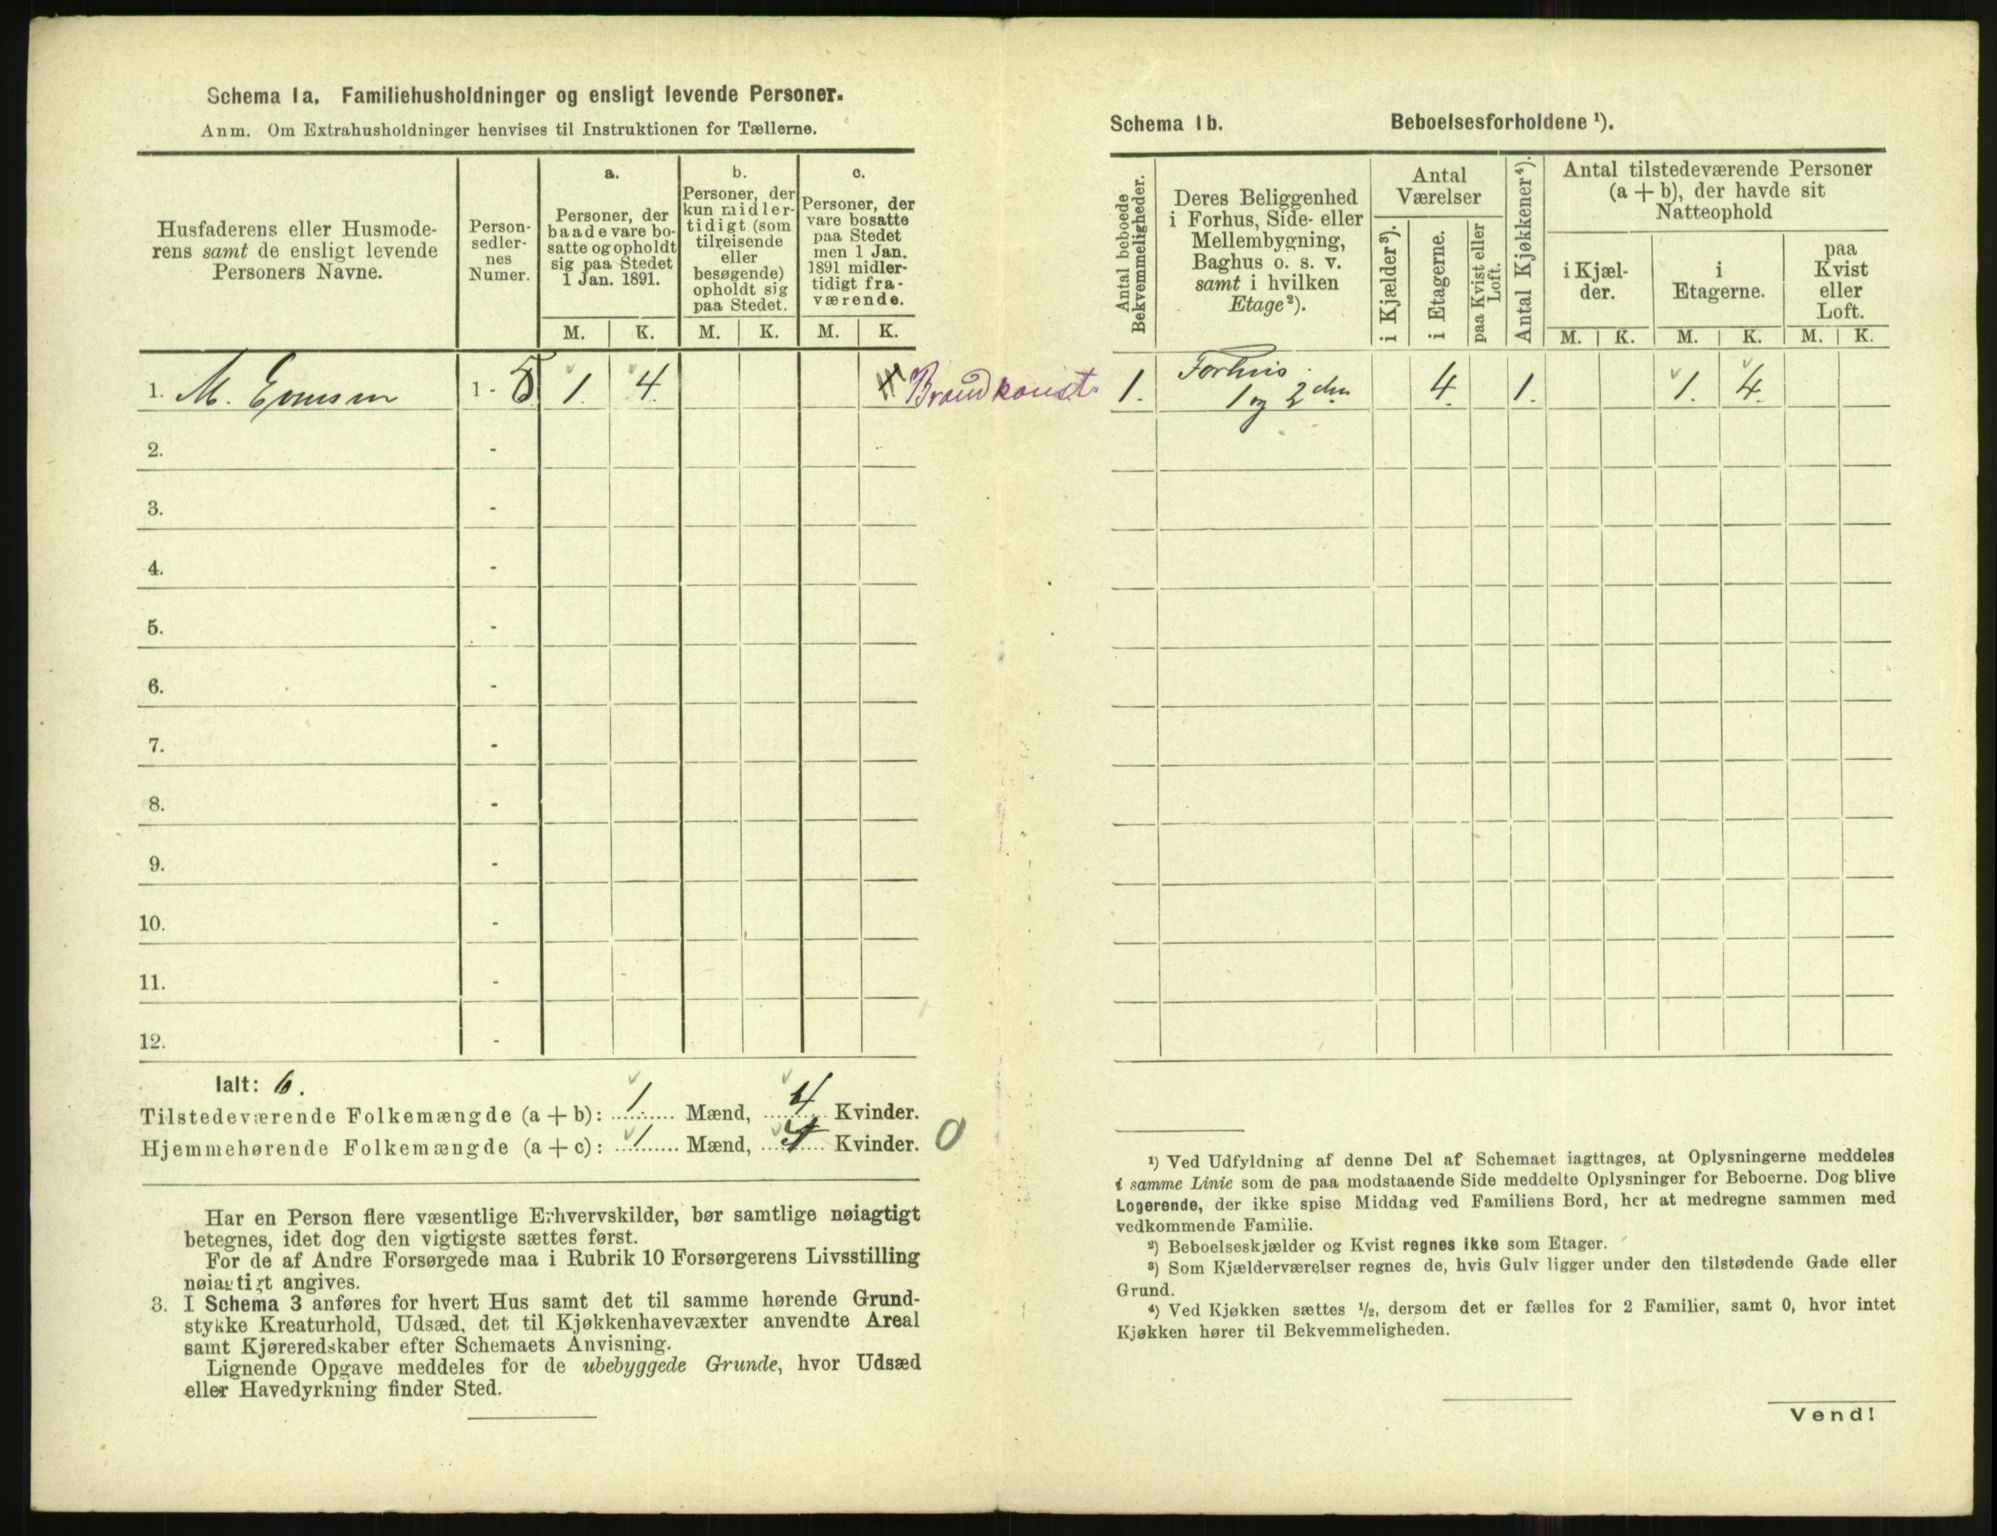 Schema 1a. Familiehusholdninger og ensligt levende Personer.
Anm. Om Extrahusholdninger henvises til Instruktionen for Tællerne.
Husfaderens eller Husmode-
rens samt de ensligt levende
Personers Navne.
Person-
sedler-
nes
Numer.
a.
Personer, der
baade vare bo-
satte og opholdt
sig paa Stedet
1 Jan. 1891.
b.
Personer, der
kun midler-
tidigt (som
tilreisende
eller
besøgende)
opholdt sig
paa Stedet.
c.
Personer, der
vare bosatte
paa Stedet
men 1 Jan.
1891 midler-
tidigt fra-
værende.
M. K. M. K. M. K.
1. M. 1 - 5 1. 4. Brandkonst.
2. -
3. -
4. -
5. -
6. -
7. -
8. -
9. -
10. -
11. -
12. -
Ialt: 6.
Tilstedeværende Folkemængde (a + b): 1 Mænd, 4 Kvinder.
Hjemmehørende Folkemængde (a + c): 1 Mænd, 4 Kvinder. 0
Har en Person flere væsentlige Erhvervskilder, bør samtlige nøiagtigt
betegnes, idet dog den vigtigste sættes først.
For de af Andre Forsørgede maa i Rubrik 10 Forsørgerens Livsstilling
nøiagtigt angives.
3. I Schema 3 anføres for hvert Hus samt det til samme hørende Grund-
stykke Kreaturhold, Udsæd, det til Kjøkkenhavevæxter anvendte Areal
samt Kjøreredskaber efter Schemaets Anvisning.
Lignende Opgave meddeles for de ubebyggede Grunde, hvor Udsæd
eller Havedyrkning finder Sted.
Schema 1b. Beboelsesforholdene ¹).
Antal beboede
Bekvemmeligheder.
Deres Beliggenhed
i Forhus, Side- eller
Mellembygning,
Baghus o. s. v.
samt i hvilken
Etage²).
Antal
Værelser
i Kjælder³).
i Etagerne.
paa Kvist eller
Loft.
Antal Kjøkkener⁴).
Antal tilstedeværende Personer
(a + b), der havde sit
Natteophold
i Kjæl-
der.
i
Etagerne.
paa
Kvist
eller
Loft.
M. K. M. K. M. K.
1. Forhus.
1 og 2den 4. 1. 1. 4.
¹) Ved Udfyldning af denne Del af Schemaet iagttages, at Oplysningerne meddeles
i samme Linie som de paa modstaaende Side meddelte Oplysninger for Beboerne. Dog blive
Logerende, der ikke spise Middag ved Familiens Bord, her at medregne sammen med
vedkommende Familie.
²) Beboelseskjælder og Kvist regnes ikke som Etager.
³) Som Kjælderværelser regnes de, hvis Gulv ligger under den tilstødende Gade eller
Grund.
⁴) Ved Kjøkken sættes ½, dersom det er fælles for 2 Familier, samt 0, hvor intet
Kjøkken hører til Bekvemmeligheden.
Vend!